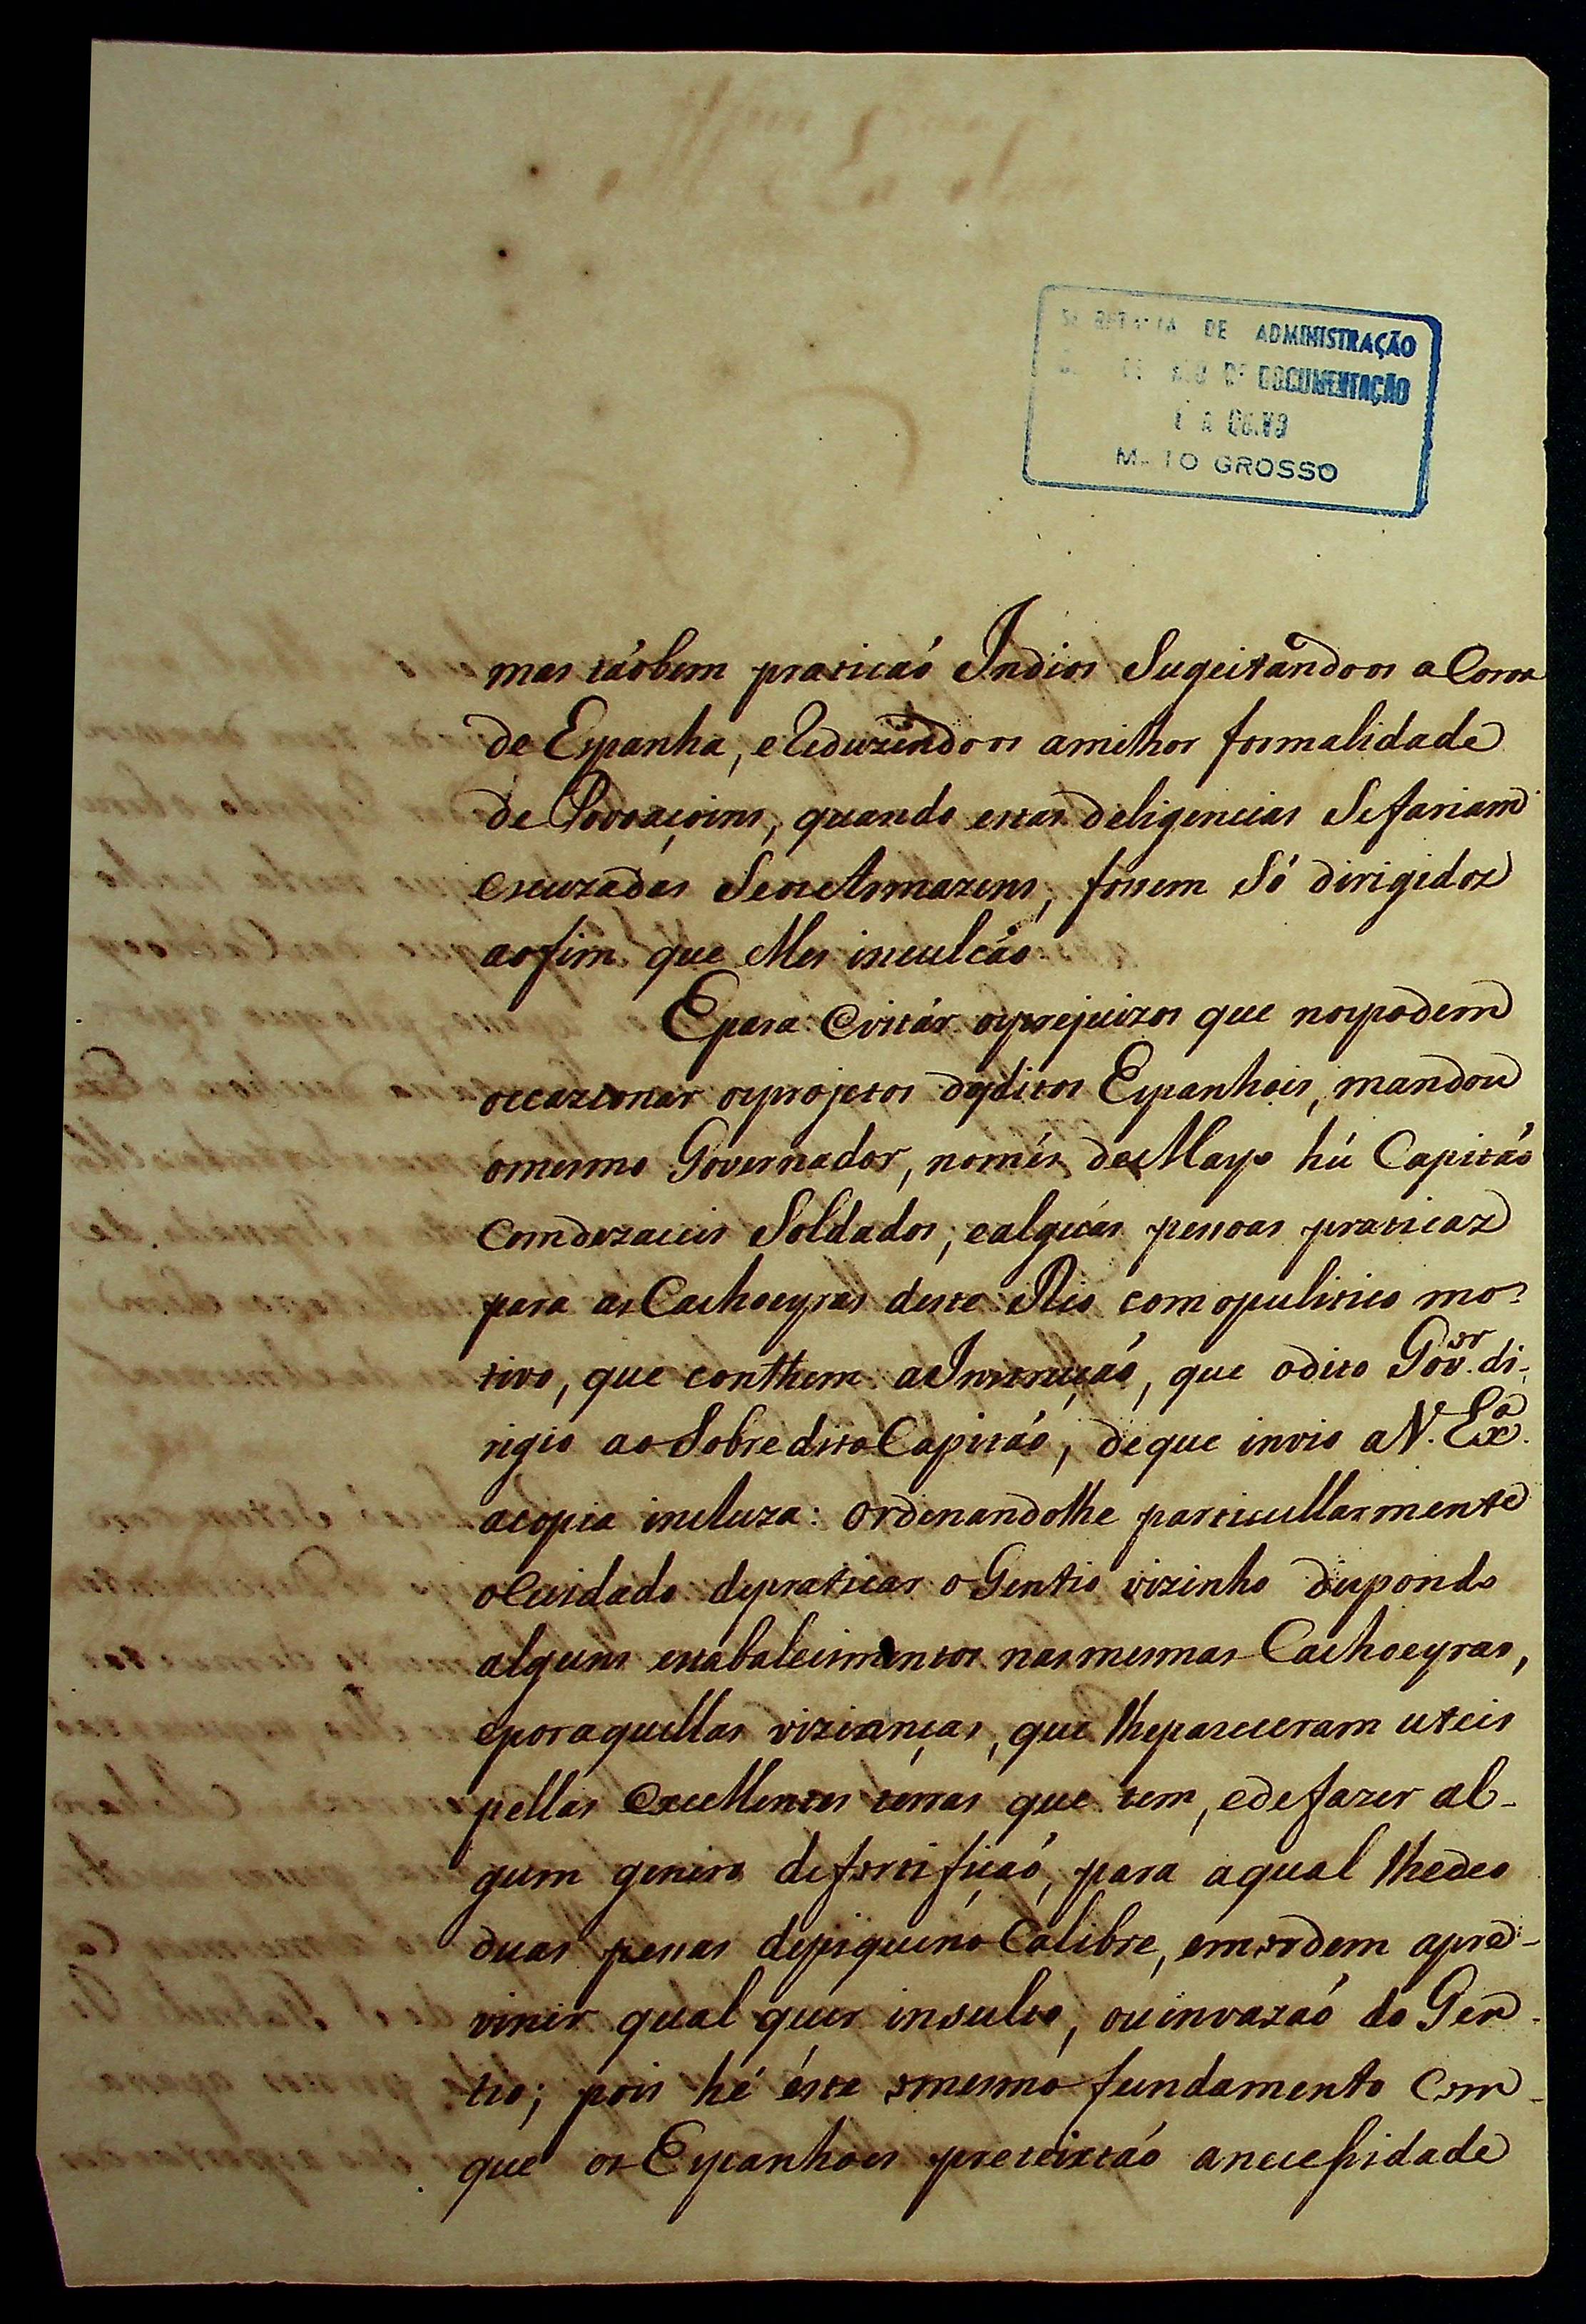 DE ADMINISTRAÇÃO
DE DOCUMENTAÇÃO
GROSSO
mas táobem praticáó Indios Sugeitandoos a Coroa
de Espanha, e Reduzindoos amelhor formalidade
de Povoaçoins, quando estas deligencias Sefariam
escuzadas Seos Armazens, fossem Só dirigidos
aofim que elles inculcáó
Epara Evitár osprejuizos que nospodem
occazionar osprojetos dosditos Espanhois, mandou
omesmo Governador, només de Mayo hú Capitáó
Comdezaceis Soldados, ealguás pessoas praticas
para as Cachoeyras deste Rio com opulitico mo-
tivo, que conthem aInstruçáó, que odito Gov.or di-
rigio ao Sobredito Capitáó, deque invio aV. Ex.a
acopia incluza: ordenandolhe particullarmente
oCuidado depraticar o Gentio vizinho dispondo
alguns estabalecimentos nasmesmas Cachoeyras,
eporaquellas vizianças, que lhepareceram uteis
pellas Excellentes terras que tem, edefazer al-
gum genero defortificáó, para aqual lhedeo
duas pessas depiqueno Calibre, emordem apre-
vinir qual quer insulto, ouinvazáó do Gen-
tio; pois hé éste omesmo fundamento Com
que os Espanhoes preteixtáó anecessidade